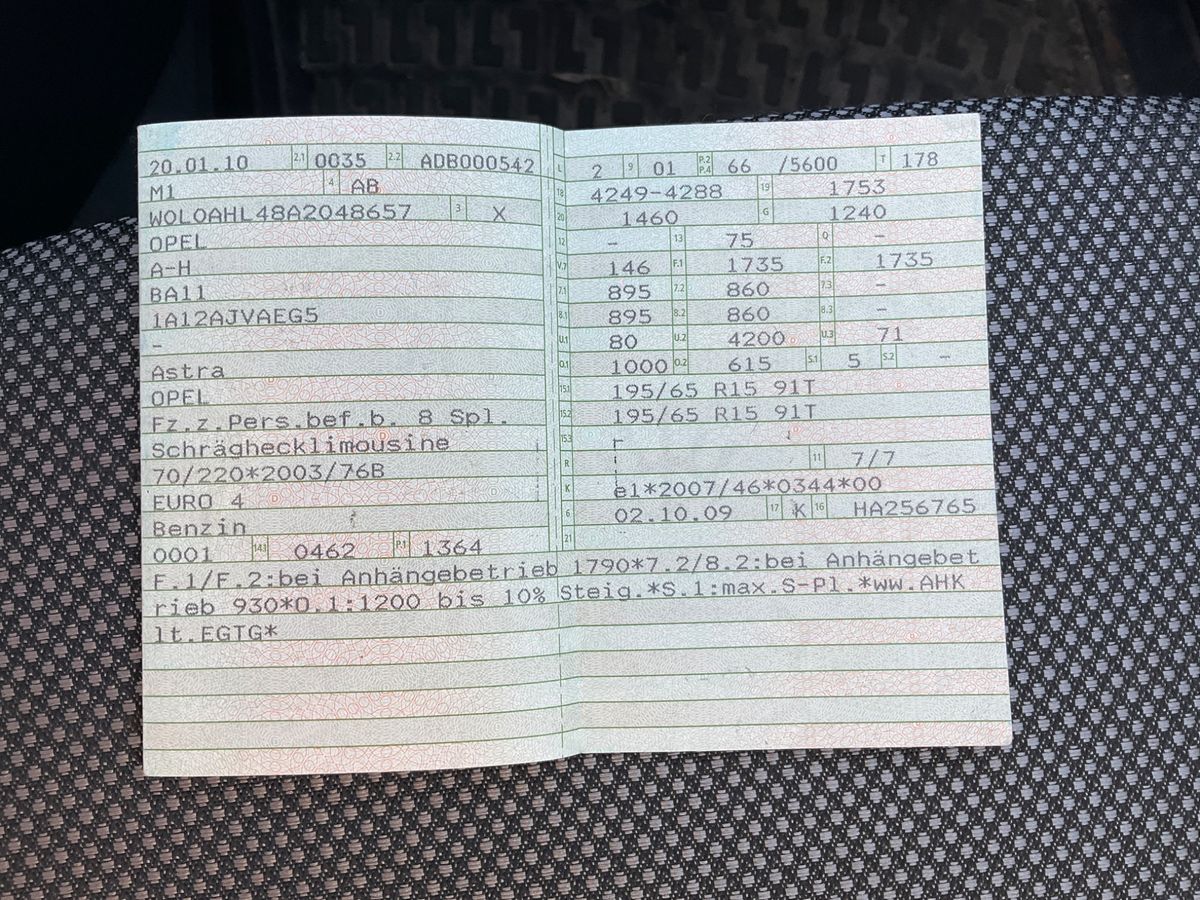 20.01.10 2.1 0035 2.2 ADB000542
M1 4 AB
W0L0AHL48A2048657 3 X
OPEL
A-H
BA11
1A12AJVAEG5
–
Astra
OPEL
Fz.z.Pers.bef.b. 8 Spl.
Schräghecklimousine
70/220*2003/76B
EURO 4
Benzin
0001 14.1 0462 P.1 1364
L 2 9 01 P.2 P.4 66 /5600 T 178
18 4249-4288 19 1753
20 1460 G 1240
12 – 13 75 Q –
V.7 146 F.1 1735 F.2 1735
7.1 895 7.2 860 7.3 –
8.1 895 8.2 860 8.3 –
U.1 80 U.2 4200 U.3 71
O.1 1000 O.2 615 S.1 5 S.2 –
15.1 195/65 R15 91T
15.2 195/65 R15 91T
15.3
R 11 7/7
K e1*2007/46*0344*00
6 02.10.09 17 K 16 HA256765
21
F.1/F.2:bei Anhängebetrieb 1790*7.2/8.2:bei Anhängebet
rieb 930*O.1:1200 bis 10% Steig.*S.1:max.S-Pl.*ww.AHK
lt.EGTG*